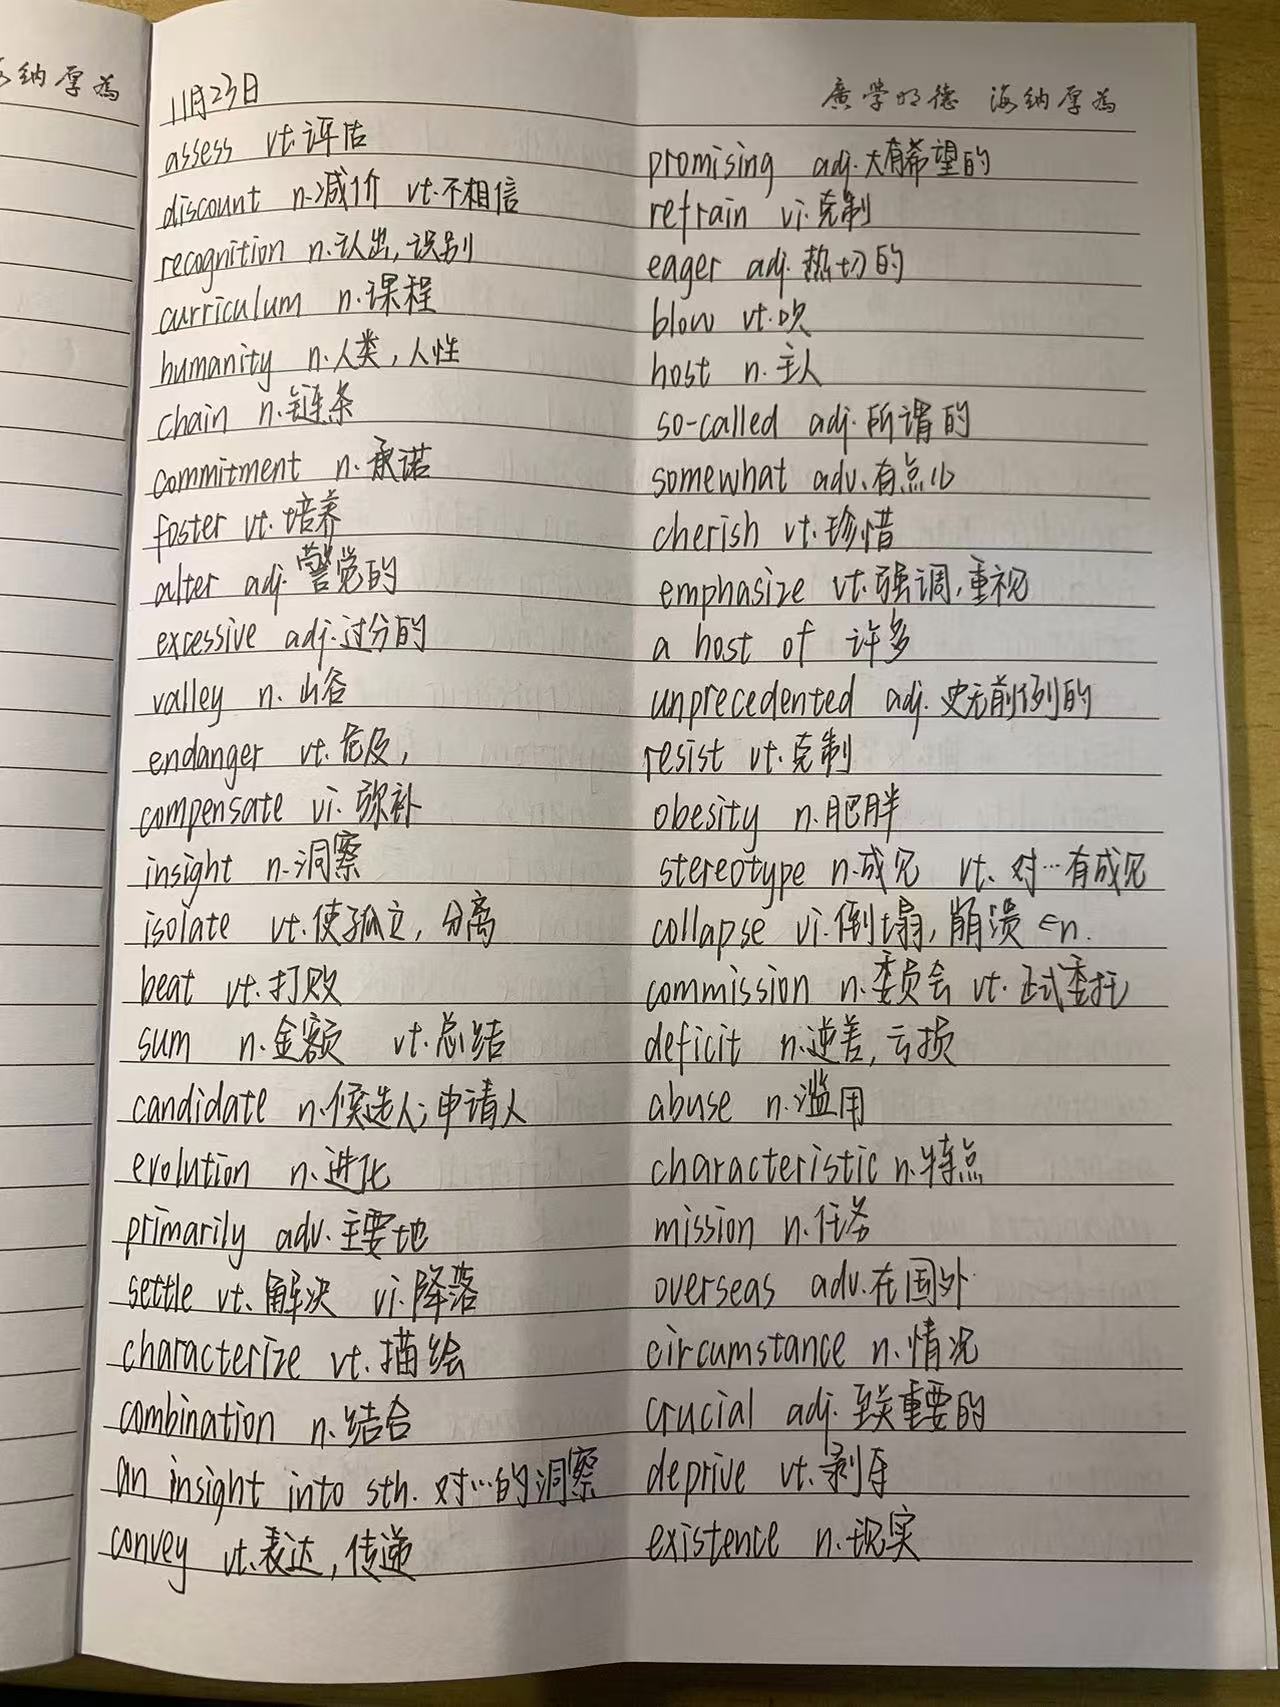 纳厚為
11月23日
廣学明德 海纳厚為
assess vt.评估
discount n.减价 vt.不相信
recognition n.认出,识别
curriculum n.课程
humanity n.人类,人性
chain n.链条
commitment n.承诺
foster vt.培养
alter adj.警觉的
excessive adj.过分的
valley n.山谷
endanger vt.危及,
compensate vi.弥补
insight n.洞察
isolate vt.使孤立,分离
beat vt.打败
sum n.金额 vt.总结
candidate n.候选人;申请人
evolution n.进化
primarily adv.主要地
settle vt.解决 vi.降落
characterize vt.描绘
combination n.结合
an insight into sth.对…的洞察
convey vt.表达,传递
promising adj.大有希望的
refrain vi.克制
eager adj.热切的
blow vt.吹
host n.主人
so-called adj.所谓的
somewhat adv.有点儿
cherish vt.珍惜
emphasize vt.强调,重视
a host of 许多
unprecedented adj.史无前例的
resist vt.克制
obesity n.肥胖
stereotype n.成见 vt.对…有成见
collapse vi.倒塌,崩溃 ∈n.
commission n.委员会 vt.正式委托
deficit n.逆差,亏损
abuse n.滥用
characteristic n.特点
mission n.任务
overseas adv.在国外
circumstance n.情况
crucial adj.至关重要的
deprive vt.剥夺
existence n.现实